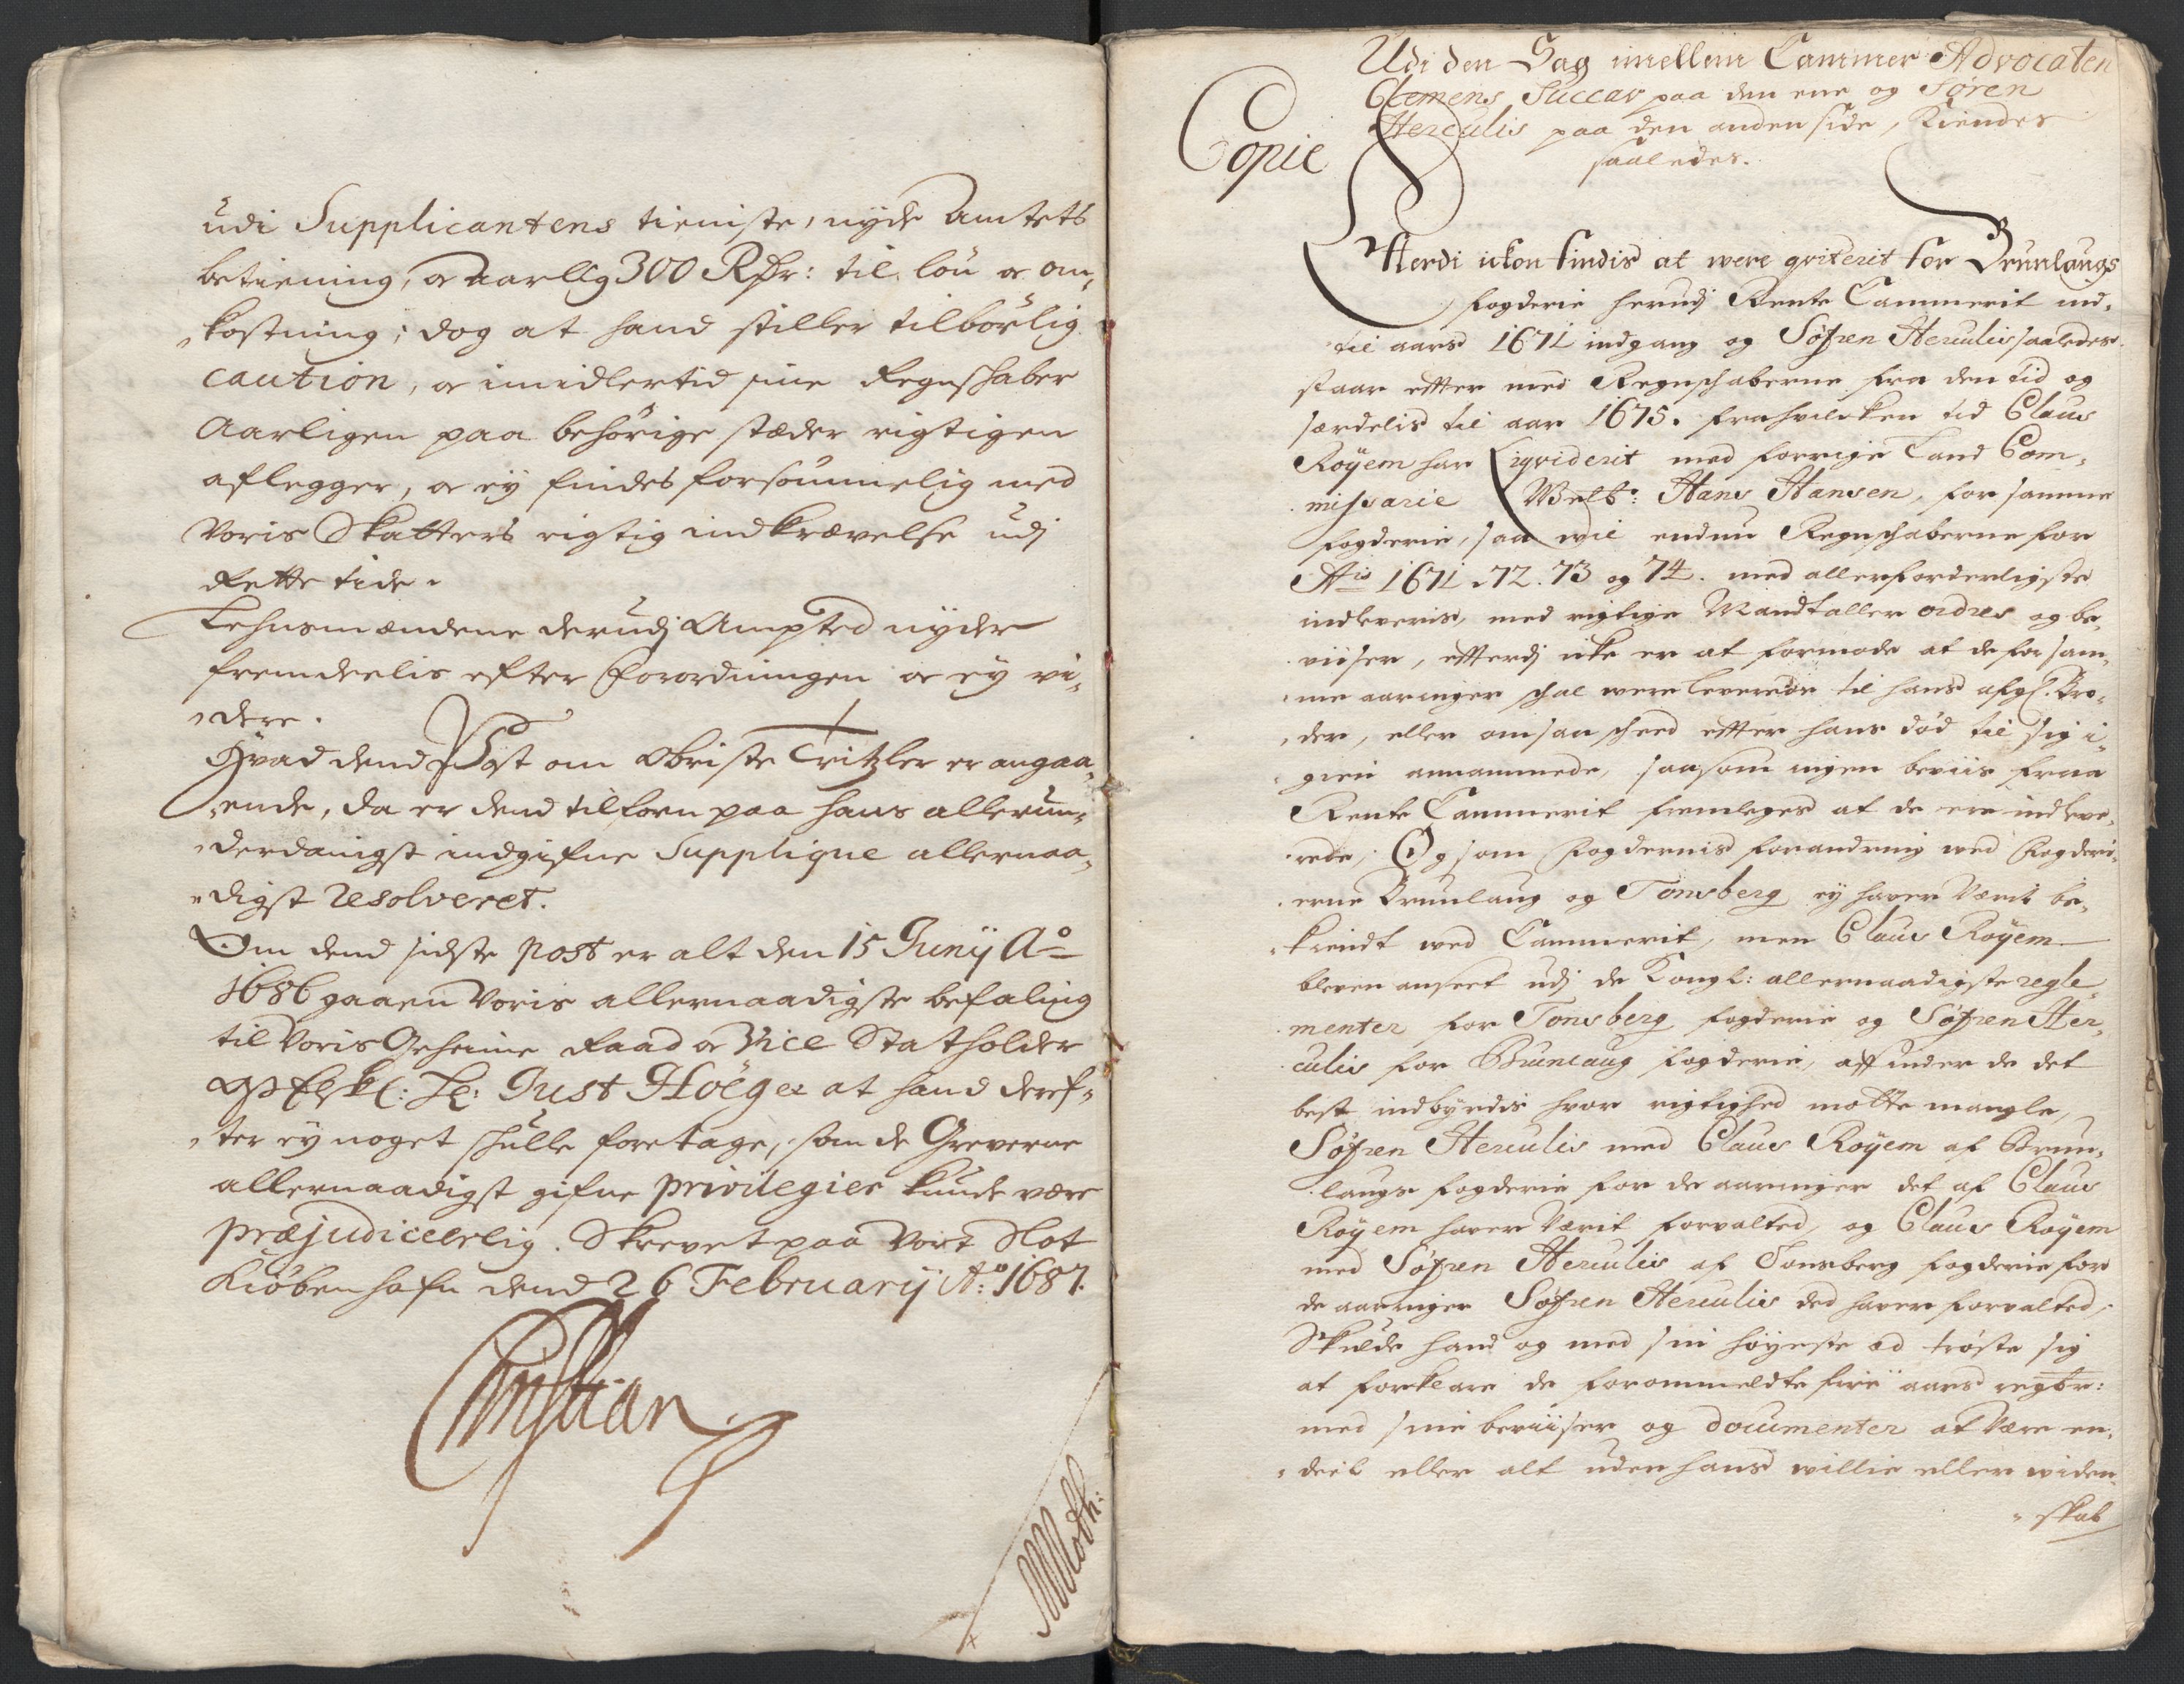 udi Supplicantens tieniste, nyde Amtets
betiening, oc aarllg 300 Rdr: til løn oc om-
kostning; dog at hand stiller tilbörlig
caution, oc imidlertid sine Regnskaber
Aarligen paa behörige stæder rigtigen
aflegger, oc ey findes forsömmelig med
Voris Skatters rigtig indkrævelse udj
Rette tide.
Lehnsmændene derudj Ampted nyder
fremdeelis efter Forordningen oc ey vi-
dere.
Hvad dend Post om Obriste Tritzler er angaa-
ende, da er dend tilforn paa hans allerun-
derdanigst indgifne Supplique allernaa-
digst resolveret.
Om dend sidste post er alt den 15 Junij Ao
1686 gaaen Voris allernaadigste befaling
til Voris Geheime Raad oc Vice Statholder
Just Höeg at hand deref-
ter ey noget skulle foretage, som de Greverne
allernaadigst gifne privilegier kunde være
præjudiceerlig. Skrevet paa Vort Slot
Kiöbenhafn dend 26 Februarij Ao: 1687.
Christian
MMoth.
Copie
Udi den Sag imellem Cammer Advocaten
Clemens Succav paa den ene og Søren
Herculis paa den anden side, Kiendes
saaledes.
Efterdi icken findis at were qviterit for Brunlaugs
fogderie herudj Rente Cammerit ind-
til aars 1671 indgang og Søfren Herculis saaledes
staar efter med Regnschaberne fra den tid og
særdelis til aar 1675. fra hvilcken tid Claus
Røyem har Liqviderit med forrige Land Com-
missarie Welb: Hans Hansen, for samme
fogderie, saa wil endnu Regnschaberne for
Ais 1671. 72. 73 og 74. med allerforderligste
indleveris, med rigtige Mandtaller ordres og be-
viiser, efterdj icke er at formode at de for sam-
me aaringer schal were leverede til hans afg: Bro-
der, eller om saa skeed efter hans död til sig i-
gien annammede, saasom ingen beviis fraa
Rente Cammerit fremleges at de ere indleve-
rede; Og som Fogdernis forandring wed Fogderi-
erne Brunlaug og Tonsberg ey hafver Værit be-
kiendt wed Cammerit, men Claus Røyem
bleven anseet udj de Kongl: allernaadigste regle-
menter for Tonsberg fogderie og Søfren Her-
culis for Brunlaug fogderie, affinder de det
best indbyrdis hvor rigtighed motte mangle,
Søfren Herculis med Claus Røyem af Brun-
laugs fogderie for de aaringer det af Claus
Røyem hafver Værit forvalted, og Claus Røyem
med Søfren Herculis af Tonsberg fogderie for
de aaringer Søfren Herculis ded hafver forvalted,
Skulde hand og med sin höyeste æd tröste sig
at forklare de forommeldte fire aars regbr:
med sine beviiser og documenter at være en-
deel eller alt uden hans willie eller widen-
skab